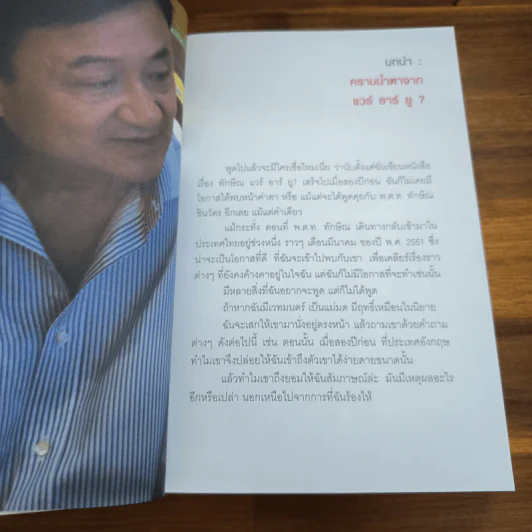 บทนำ :
คราบน้ำตาจาก
แวร์ อาร์ ยู ?
พูดไปแล้วจะมีใครเชื่อไหมเนี่ย ว่านับตั้งแต่ฉันเขียนหนังสือ
เรื่อง ทักษิณ แวร์ อาร์ ยู? เสร็จไปเมื่อสองปีก่อน ฉันก็ไม่เคยมี
โอกาสได้พบหน้าค่าตา หรือ แม้แต่จะได้พูดคุยกับ พ.ต.ท. ทักษิณ
ชินวัตร อีกเลย แม้แต่คำเดียว
แม้กระทั่ง ตอนที่ พ.ต.ท. ทักษิณ เดินทางกลับเข้ามาใน
ประเทศไทยอยู่ช่วงหนึ่ง ราวๆ เดือนมีนาคม ของปี พ.ศ. 2551 ซึ่ง
น่าจะเป็นโอกาสที่ดี ที่ฉันจะเข้าไปพบกับเขา เพื่อเคลียร์เรื่องราว
ต่างๆ ที่ยังคงค้างคาอยู่ในใจฉัน แต่ฉันก็ไม่มีโอกาสที่จะทำเช่นนั้น
มีหลายสิ่งที่ฉันอยากจะพูด แต่ก็ไม่ได้พูด
ถ้าหากฉันมีเวทมนตร์ เป็นแม่มด มีฤทธิ์เหมือนในนิยาย
ฉันจะเสกให้เขามานั่งอยู่ตรงหน้า แล้วถามเขาด้วยคำถาม
ต่างๆ ดังต่อไปนี้ เช่น ตอนนั้น เมื่อสองปีก่อน ที่ประเทศอังกฤษ
ทำไมเขาจึงปล่อยให้ฉันเข้าถึงตัวเขาได้ง่ายดายขนาดนั้น
แล้วทำไมเขาถึงยอมให้ฉันสัมภาษณ์ล่ะ มันมีเหตุผลอะไร
อีกหรือเปล่า นอกเหนือไปจากการที่ฉันร้องไห้